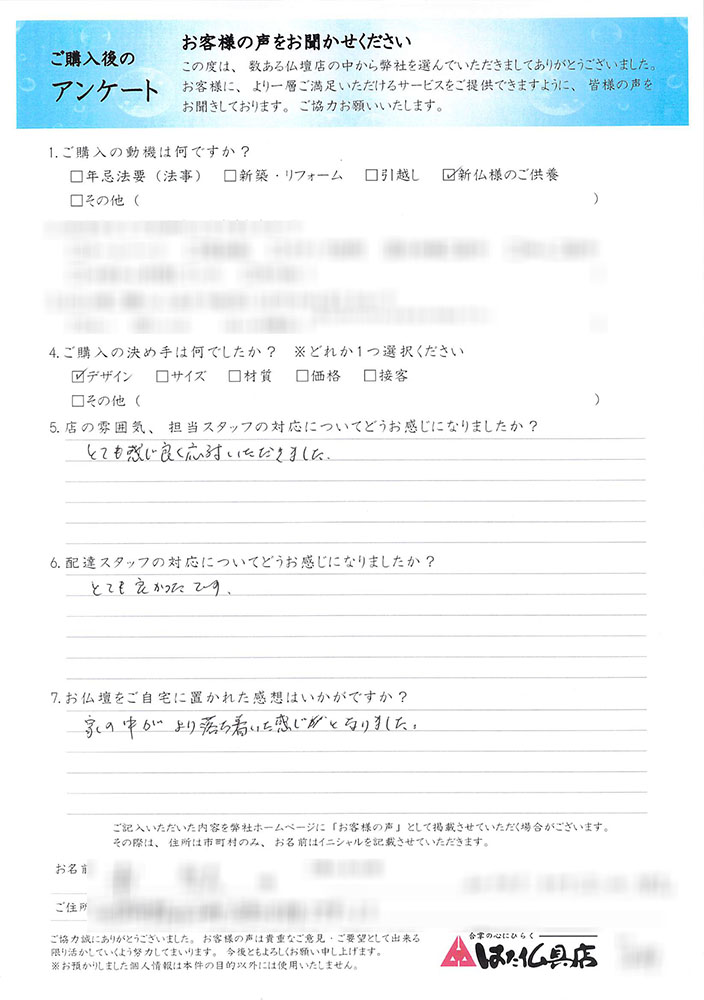 ご購入後の
アンケート
お客様の声をお聞かせください
この度は、数ある仏壇店の中から弊社を選んでいただきましてありがとうございました。
お客様に、より一層ご満足いただけるサービスをご提供できますように、皆様の声を
お聞きしております。ご協力お願いいたします。
1.ご購入の動機は何ですか?
□年忌法要(法事) □新築・リフォーム □引越し ☑新仏様のご供養
□その他( )
4.ご購入の決め手は何でしたか? ※どれか1つ選択ください
☑デザイン □サイズ □材質 □価格 □接客
□その他( )
5.店の雰囲気、担当スタッフの対応についてどうお感じになりましたか?
とても感じ良く応対いただきました。
6.配達スタッフの対応についてどうお感じになりましたか?
とても良かったです。
7.お仏壇をご自宅に置かれた感想はいかがですか?
家の中がより落ち着いた感じとなりました。
ご記入いただいた内容を弊社ホームページに『お客様の声』として掲載させていただく場合がございます。
その際は、住所は市町村のみ、お名前はイニシャルを記載させていただきます。
お名前
ご住所
ご協力誠にありがとうございました。お客様の声は貴重なご意見・ご要望として出来る
限り活かしていくよう努力してまいります。今後ともよろしくお願い申し上げます。
※お預かりしました個人情報は本件の目的以外には使用いたしません。
合掌の心にひらく
はた仏具店